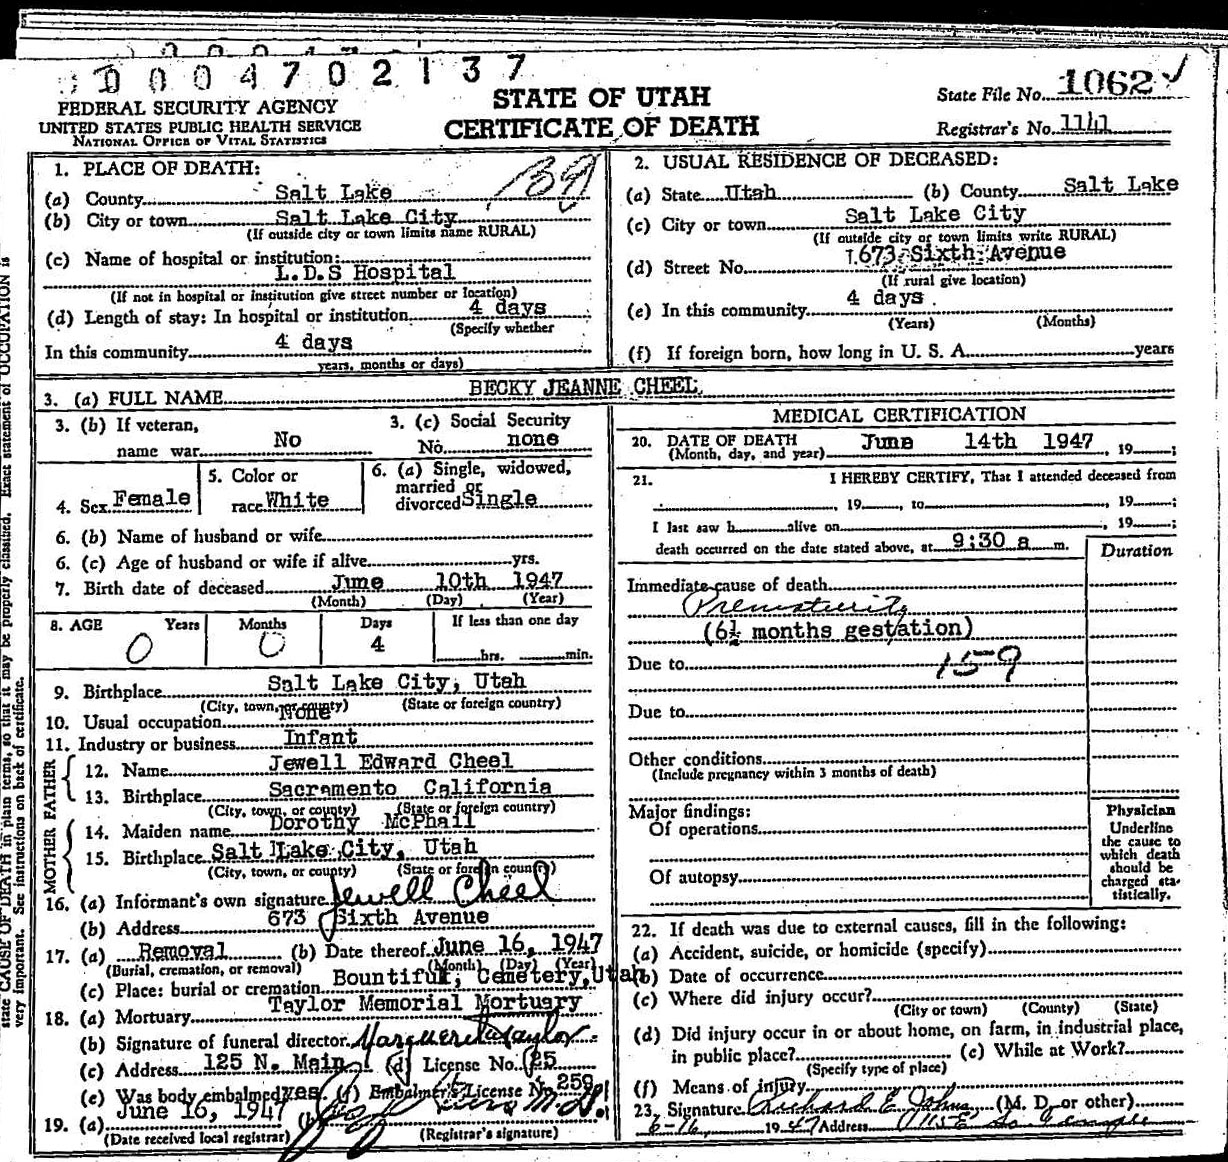 D 0 0 4 7 0 2 1 3 7
FEDERAL SECURITY AGENCY
UNITED STATES PUBLIC HEALTH SERVICE
NATIONAL OFFICE OF VITAL STATISTICS
STATE OF UTAH
CERTIFICATE OF DEATH
State File No. 1062
Registrar's No. 1141
state CAUSE OF DEATH in plain terms, so that it may be properly classified. Exact statement of OCCUPATION is
very important. See instructions on back of certificate.
1. PLACE OF DEATH:
(a) County Salt Lake
(b) City or town Salt Lake City
(If outside city or town limits name RURAL)
(c) Name of hospital or institution:
L.D.S Hospital
(If not in hospital or institution give street number or location)
(d) Length of stay: In hospital or institution 4 days
(Specify whether
In this community 4 days
years, months or days)
2. USUAL RESIDENCE OF DECEASED:
(a) State Utah (b) County Salt Lake
(c) City or town Salt Lake City
(If outside city or town limits write RURAL)
(d) Street No. 673 Sixth Avenue
(If rural give location)
(e) In this community 4 days
(Years) (Months)
(f) If foreign born, how long in U. S. A. years
3. (a) FULL NAME BECKY JEANNE CHEEL
3. (b) If veteran,
name war No
3. (c) Social Security
No. none
4. Sex Female
5. Color or
race White
6. (a) Single, widowed,
married or
divorced Single
6. (b) Name of husband or wife
6. (c) Age of husband or wife if alive yrs.
7. Birth date of deceased June 10th 1947
(Month) (Day) (Year)
8. AGE Years Months Days If less than one day
0 0 4 hrs. min.
9. Birthplace Salt Lake City, Utah
(City, town, or county) (State or foreign country)
10. Usual occupation None
11. Industry or business Infant
FATHER
12. Name Jewell Edward Cheel
13. Birthplace Sacramento California
(City, town, or county) (State or foreign country)
MOTHER
14. Maiden name Dorothy McPhail
15. Birthplace Salt Lake City, Utah
(City, town, or county) (State or foreign country)
16. (a) Informant's own signature Jewell Cheel
(b) Address 673 Sixth Avenue
17. (a) Removal (b) Date thereof June 16, 1947
(Burial, cremation, or removal) (Month) (Day) (Year)
(c) Place: burial or cremation Bountiful, Cemetery, Utah
18. (a) Mortuary Taylor Memorial Mortuary
(b) Signature of funeral director Marguerite Taylor
(c) Address 125 N. Main (d) License No. 25
(e) Was body embalmed yes (f) Embalmer's License No. 259
June 16, 1947
19. (a) (b)
(Date received local registrar) (Registrar's signature)
MEDICAL CERTIFICATION
20. DATE OF DEATH June 14th 1947, 19
(Month, day, and year)
21. I HEREBY CERTIFY, That I attended deceased from
, 19, to , 19;
I last saw h alive on , 19;
death occurred on the date stated above, at 9:30 a m.
Duration
Immediate cause of death
Prematurity
(6½ months gestation)
Due to 159
Due to
Other conditions
(Include pregnancy within 3 months of death)
Major findings:
Of operations
Of autopsy
Physician
Underline
the cause to
which death
should be
charged sta-
tistically.
22. If death was due to external causes, fill in the following:
(a) Accident, suicide, or homicide (specify)
(b) Date of occurrence
(c) Where did injury occur?
(City or town) (County) (State)
(d) Did injury occur in or about home, on farm, in industrial place,
in public place? (e) While at Work?
(Specify type of place)
(f) Means of injury
23. Signature Richard E. Johns, (M. D. or other)
6-16, 1947 Address 1115 E So Temple